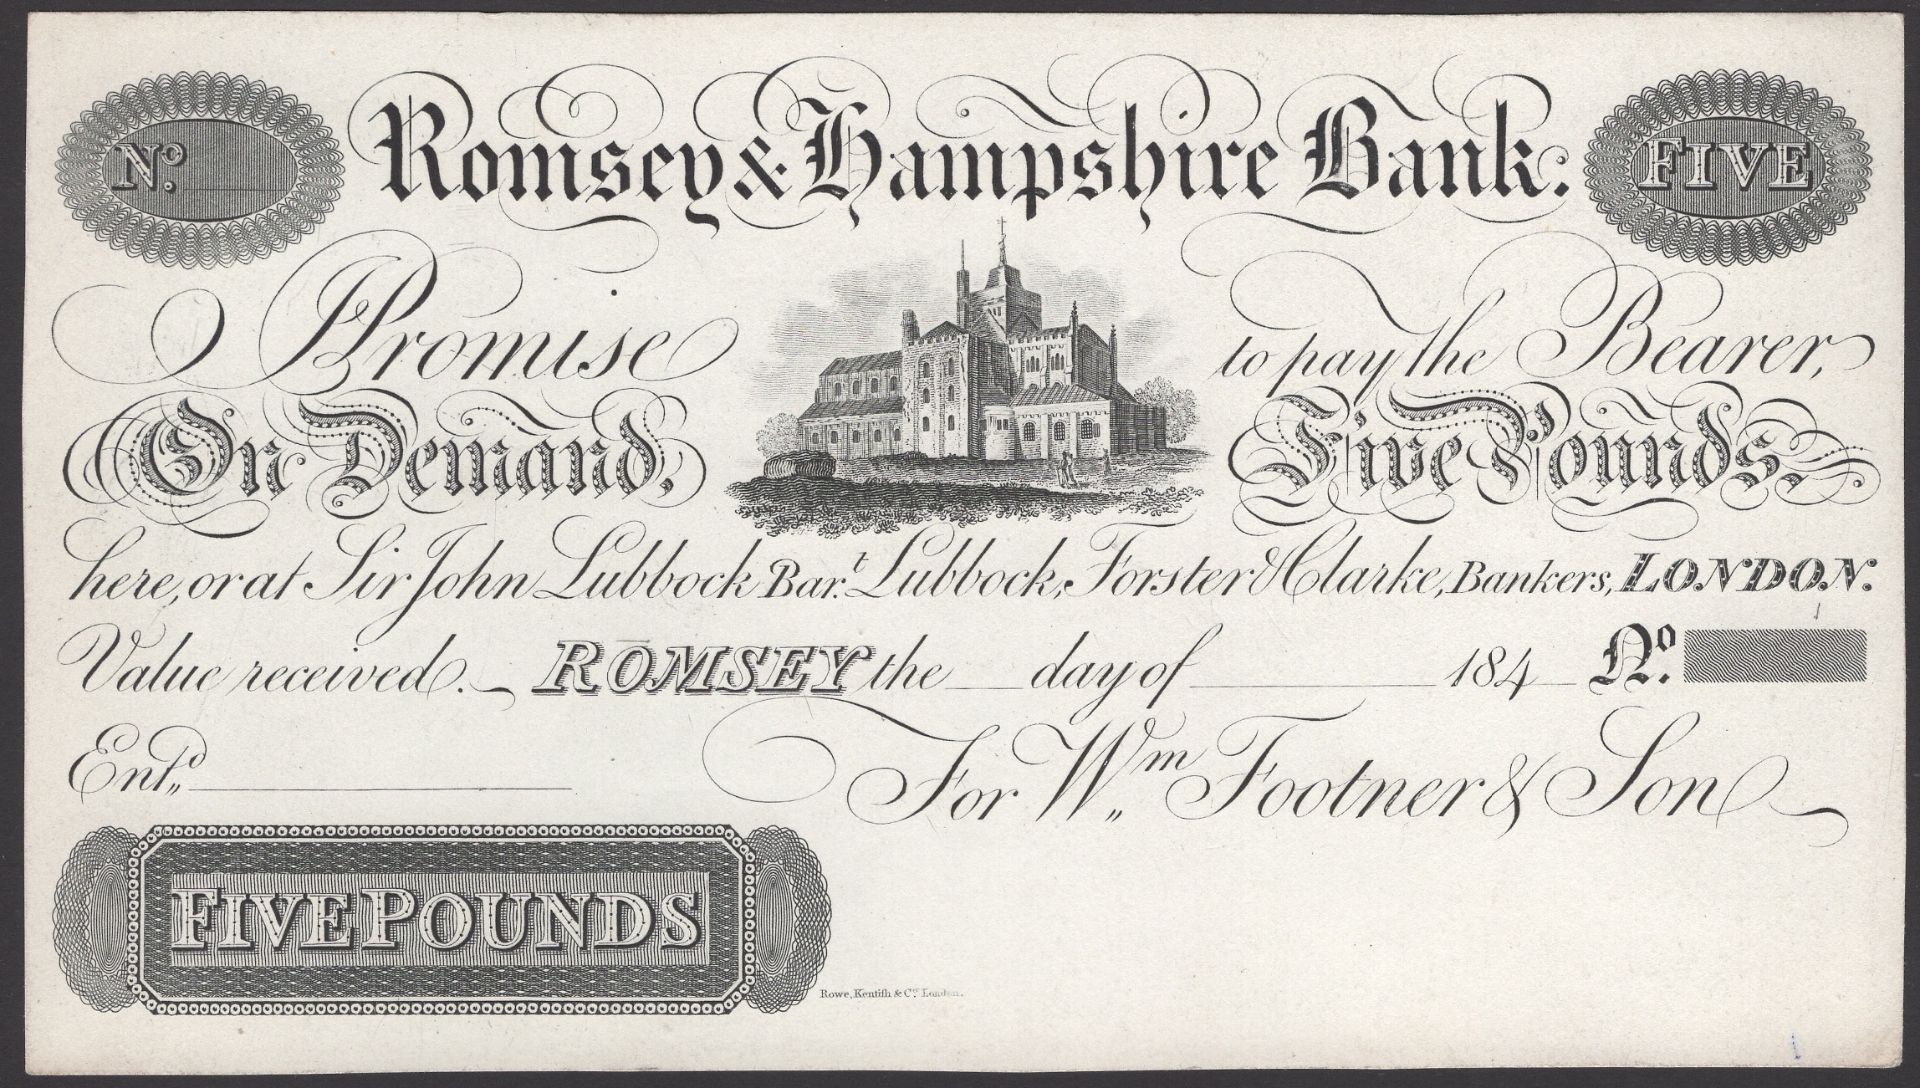 No.
Romsey & Hampshire Bank:
FIVE
I Promise to pay the Bearer,
On Demand, Five Pounds
here, or at Sir John Lubbock Bart. Lubbock, Forster & Clarke, Bankers, LONDON.
Value received. ROMSEY the ___ day of ___ 184_ No.
Entd. ___
For Wm. Footner & Son
FIVE POUNDS
Rowe, Kentish & Co. London.